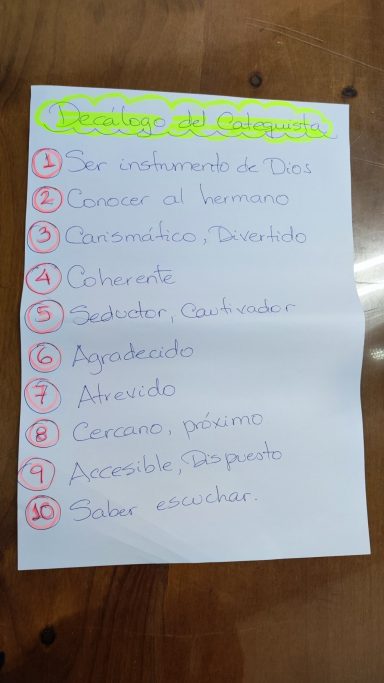 Decálogo del Catequista
1 Ser instrumento de Dios
2 Conocer al hermano
3 Carismático, Divertido
4 Coherente
5 Seductor, Cautivador
6 Agradecido
7 Atrevido
8 Cercano, próximo
9 Accesible, Dispuesto
10 Saber escuchar.